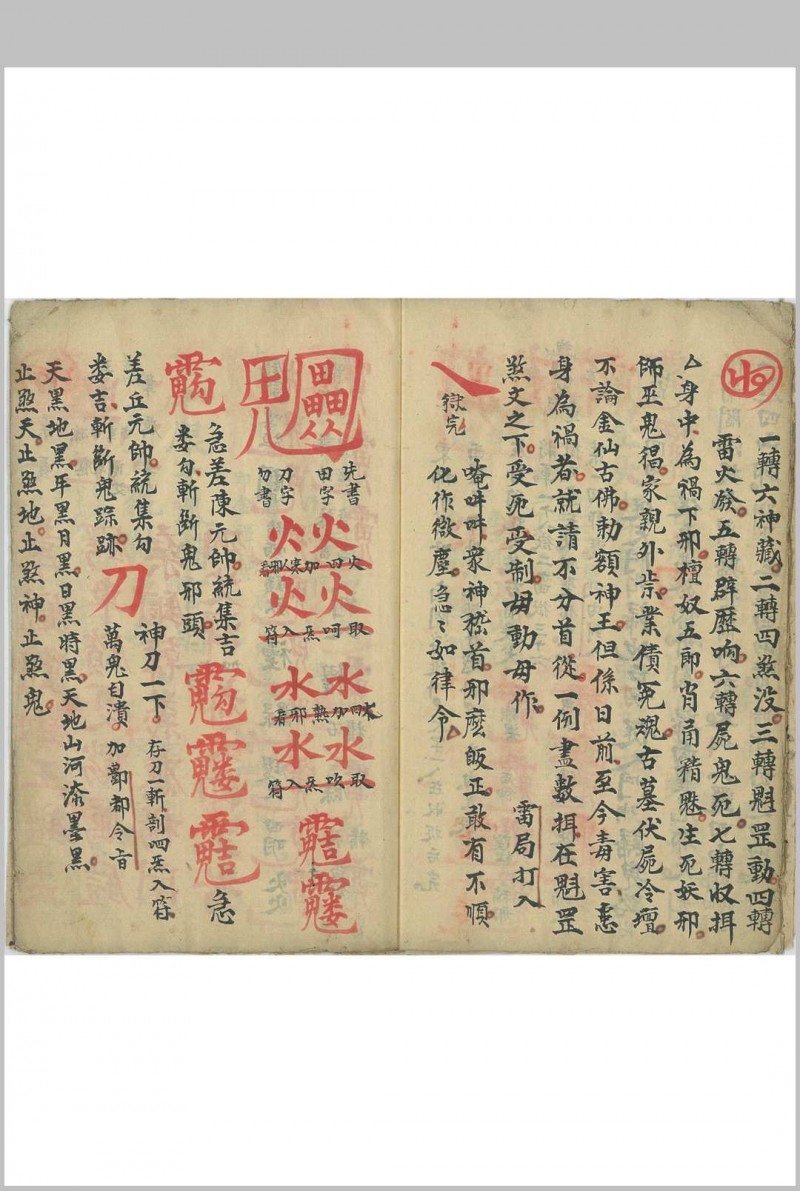 一轉六神藏二轉四煞没三轉魁罡動四轉
雷火發五轉辟歷响六轉屍鬼死七轉收捐
厶身中為禍下邪檀奴五郎肖甬精魅生死妖邪
師巫鬼猖家親外祟業債冤魂古墓伏屍冷壇
不論金仙古佛勅額神王但係日前至今毒害
身為禍者就請不分首從一例盡數捐在魁罡
煞文之下受死受制毋動毋作 雷局打入
唵吽吽眾神嵇首邪麽皈正敢有不順
化作微塵急々如律令
獄完
先書
田字
刀字
勾書
火火
火四加寒邪看
火火
取呵炁入符
水水
水四加熱邪看
水水
取吹炁入符
急差陳元帥統集吉
婁勾斬斷鬼邪頭
急
差丘元帥統集勾
婁吉斬斷鬼踪跡
刀
神刀一下
萬鬼自潰
加酆都令旨
存刀一斬剖四炁入符
天黑地黑年黑月黑日黑時黑天地山河添墨黑
止煞天止煞地止煞神止煞鬼